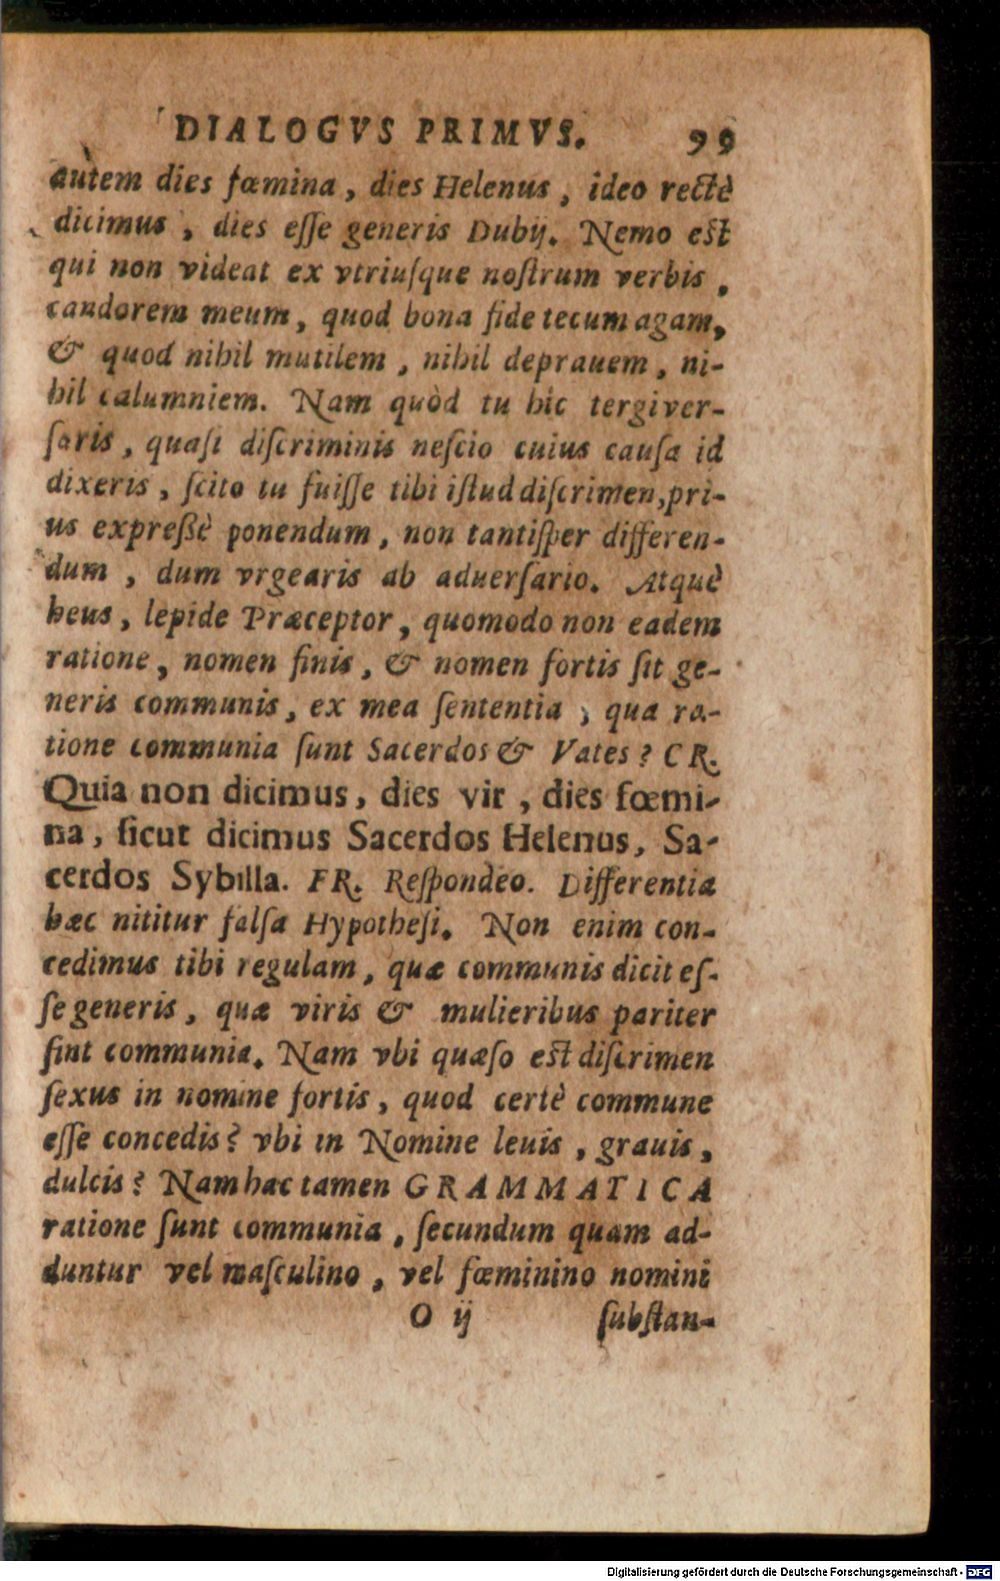 DIALOGVS PRIMVS. 99
autem dies fœmina, dies Helenus, ideo rectè
dicimus, dies eſſe generis Dubij. Nemo est
qui non videat ex vtriuſque noſtrum verbis,
candorem meum, quod bona fide tecum agam,
& quod nihil mutilem, nihil deprauem, ni-
hil calumniem. Nam quòd tu hic tergiver-
ſaris, quaſi diſcriminis neſcio cuius cauſa id
dixeris, ſcito tu fuiſſe tibi iſtud diſcrimen, pri-
us expreßè ponendum, non tantiſper differen-
dum, dum vrgearis ab aduerſario. Atquè
heus, lepide Præceptor, quomodo non eadem
ratione, nomen finis, & nomen fortis ſit ge-
neris communis, ex mea ſententia, qua ra-
tione communia ſunt Sacerdos & Vates? CR.
Quia non dicimus, dies vir, dies fœmi-
na, ſicut dicimus Sacerdos Helenus, Sa-
cerdos Sybilla. FR. Reſpondeo. Differentia
hæc nititur falſa Hypotheſi. Non enim con-
cedimus tibi regulam, quæ communis dicit eſ-
ſe generis, quæ viris & mulieribus pariter
ſint communia. Nam vbi quæſo est diſcrimen
ſexus in nomine fortis, quod certè commune
eſſe concedis? vbi in Nomine leuis, grauis,
dulcis? Nam hac tamen GRAMMATICA
ratione ſunt communia, ſecundum quam ad-
duntur vel maſculino, vel fœminino nomini
O ij ſubſtan-
Digitalisierung gefördert durch die Deutsche Forschungsgemeinschaft - DFG